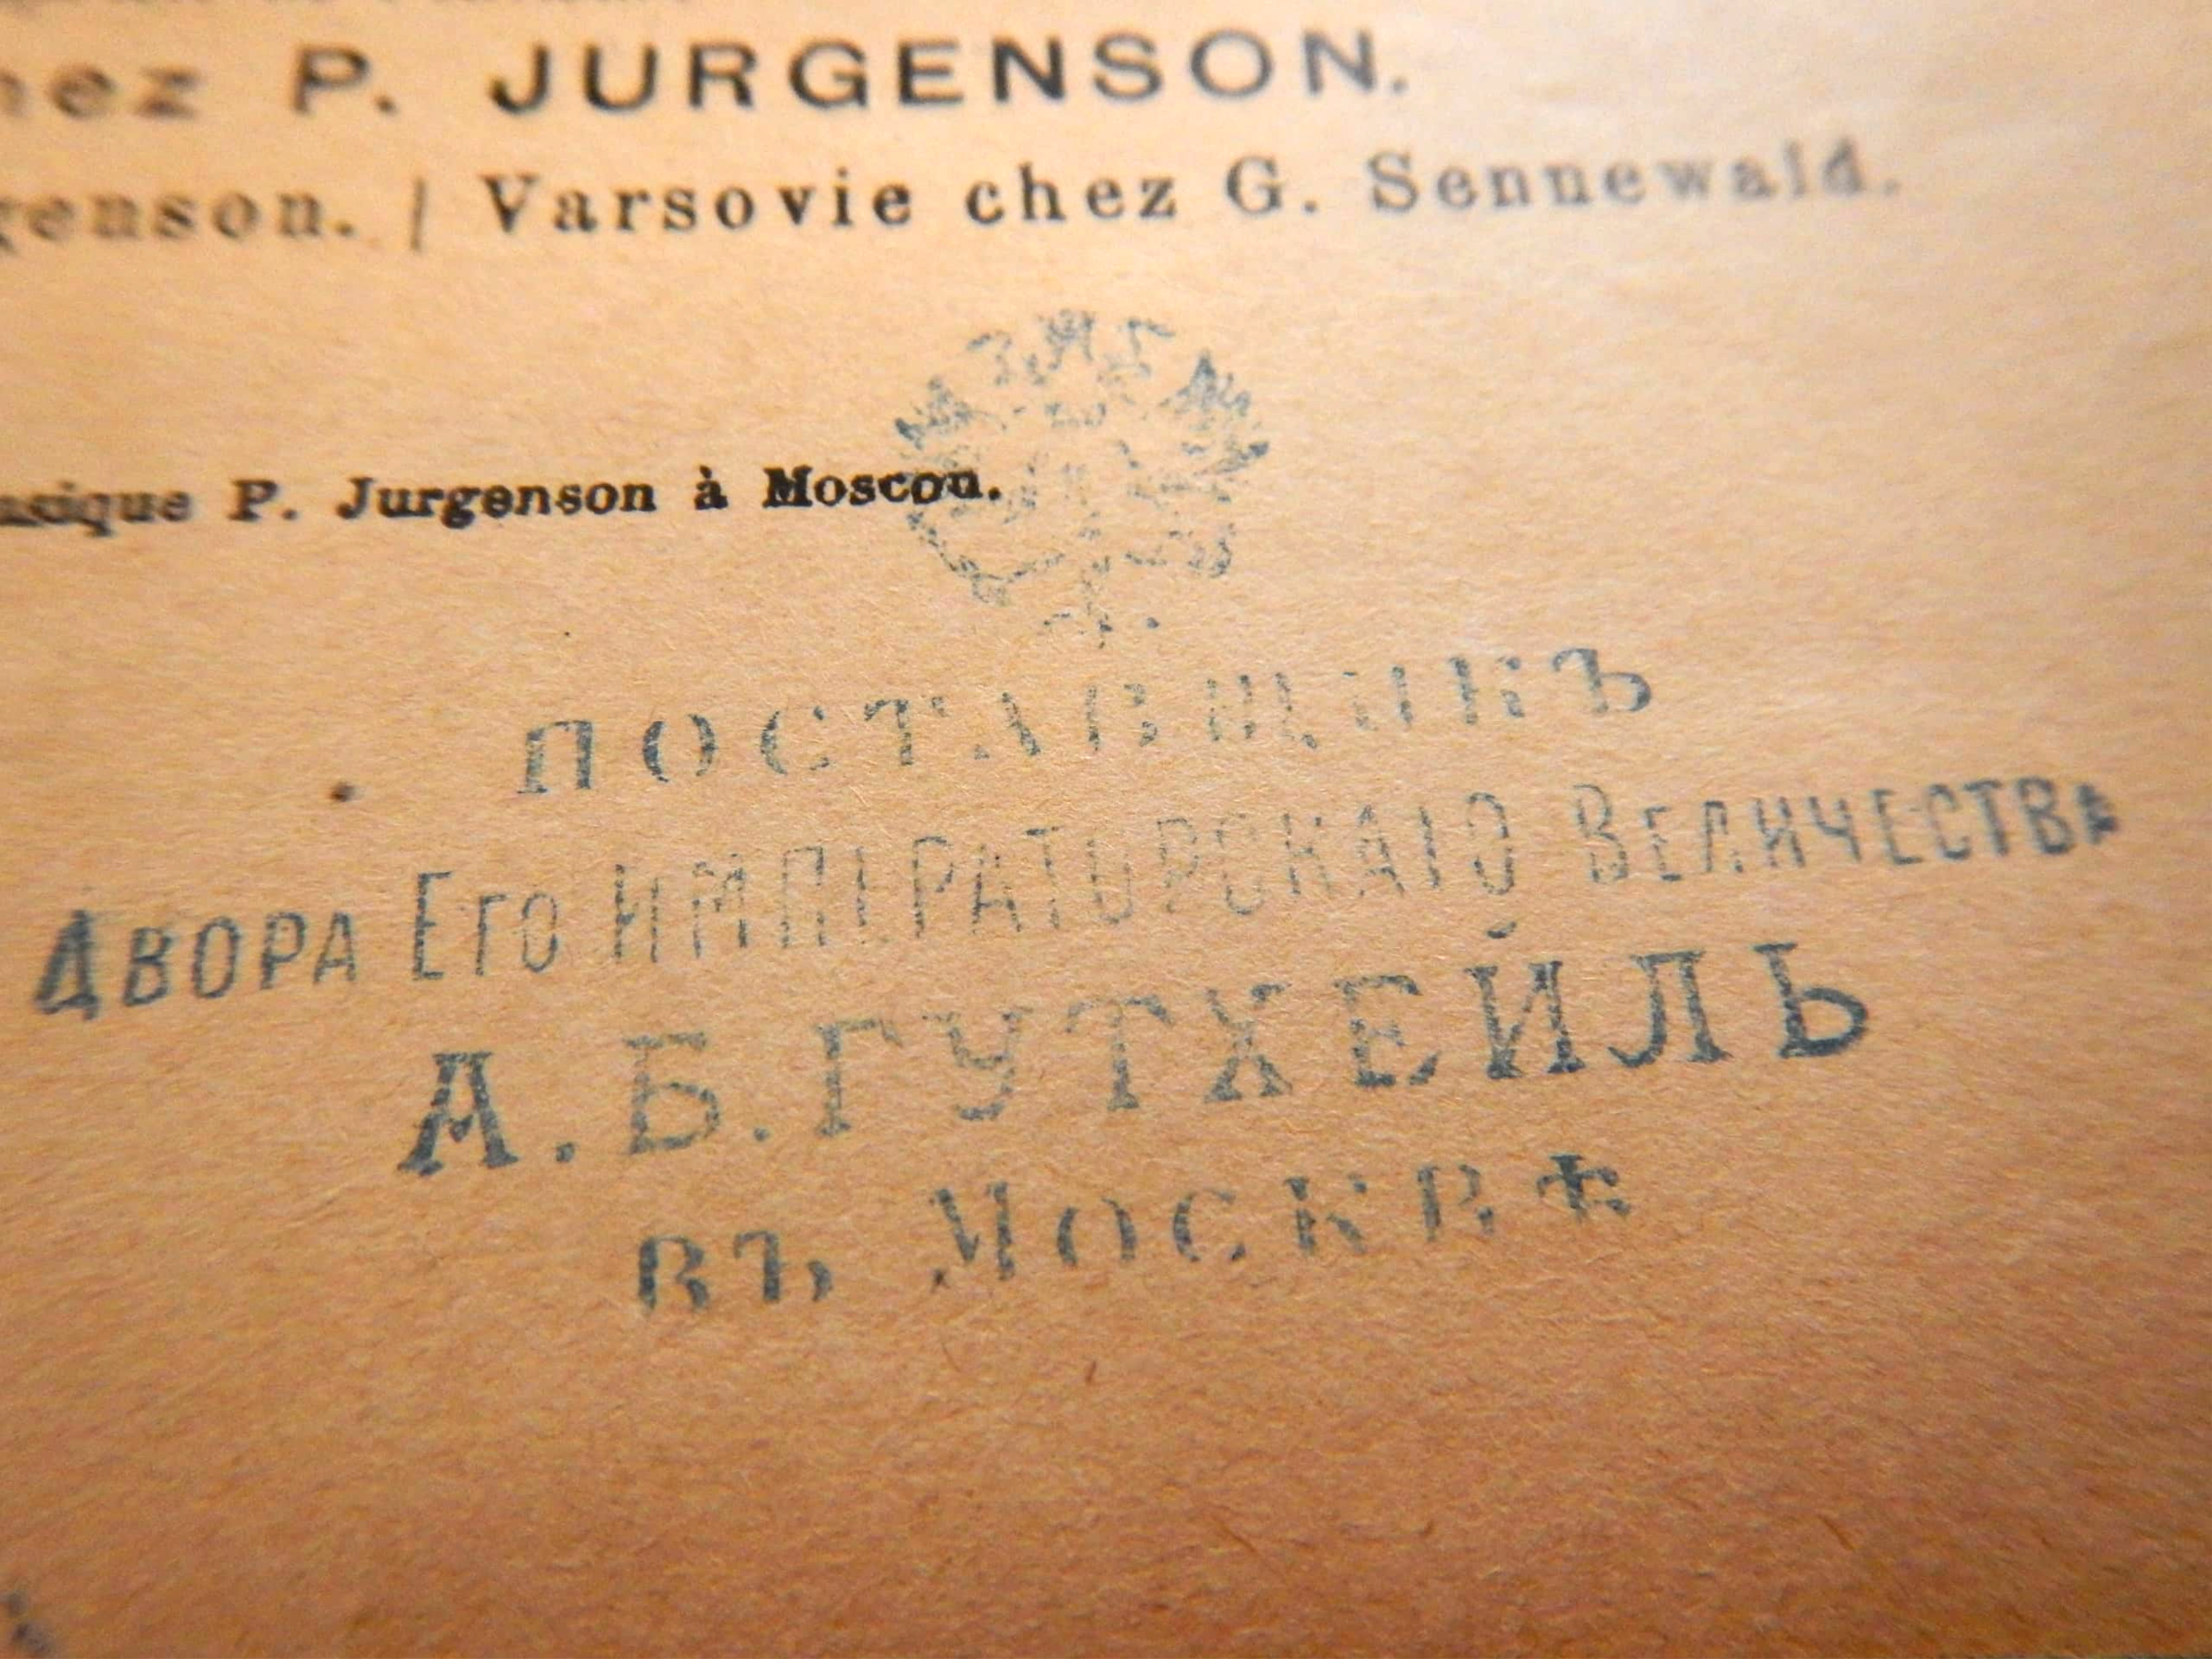 chez P. JURGENSON.
genson. | Varsovie chez G. Sennewald.
musique P. Jurgenson à Moscou.
ПОСТАВЩИКЪ
ДВОРА ЕГО ИМПЕРАТОРСКАГО ВЕЛИЧЕСТВА
А.Б.ГУТХЕЙЛЬ
ВЪ МОСКВѢ